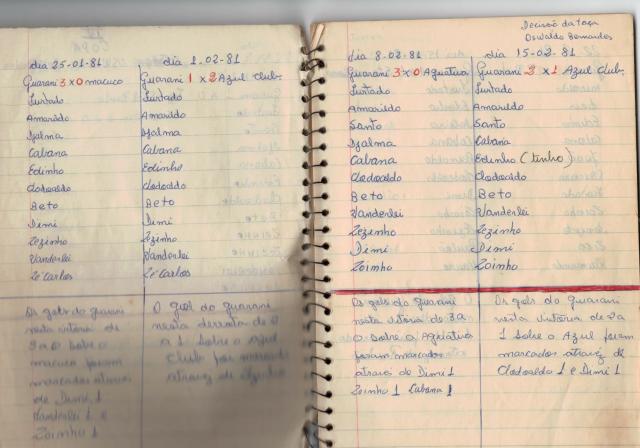 dia 25-01-81
Guarani 3 x 0 macuco
Furtado
Amarildo
Djalma
Cabana
Edinho
Clodoaldo
Beto
Dimi
Zezinho
Vanderlei
Zé Carlos
Os gols do guarani
nesta vitória de
3 a 0 sobre o
macuco foram
marcados atraves
de Dimi 1
Vanderlei 1 e
Zoinho 1
dia 1.02-81
Guarani 1 x 2 Azul Club.
Furtado
Amarildo
Djalma
Cabana
Edinho
Clodoaldo
Beto
Dimi
Zezinho
Vanderlei
Zé Carlos
O gol do guarani
nesta derrota de 2
a 1 sobre o Azul
Club foi marcado
atravez de
dia 8-02-81
Guarani 3 x 0 Aquativa
Furtado
Amarildo
Santo
Djalma
Cabana
Clodoaldo
Beto
Vanderlei
Zezinho
Dimi
Zoinho
Os gols do Guarani
nesta vitória de 3 a
0 sobre o Aquativa
foram marcados
atravez de Dimi 1
Zoinho 1 Cabana 1
Decisão da taça
Oswaldo Bernardes
dia 15-02-81
Guarani 2 x 1 Azul Club.
Furtado
Amarildo
Santo
Cabana
Edinho (tinho)
Clodoaldo
Beto
Vanderlei
Zezinho
Dimi
Zoinho
Os gols do Guarani
nesta vitória de 2 a
1 sobre o Azul foram
marcados atravez de
Clodoaldo 1 e Dimi 1